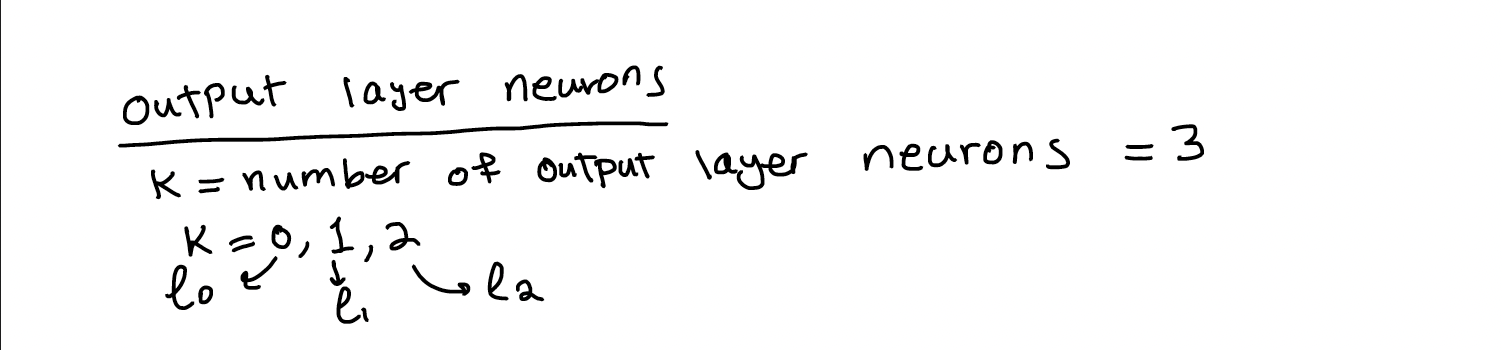 output layer neurons
K = number of output layer neurons = 3
K = 0, 1, 2
l0 l1 l2